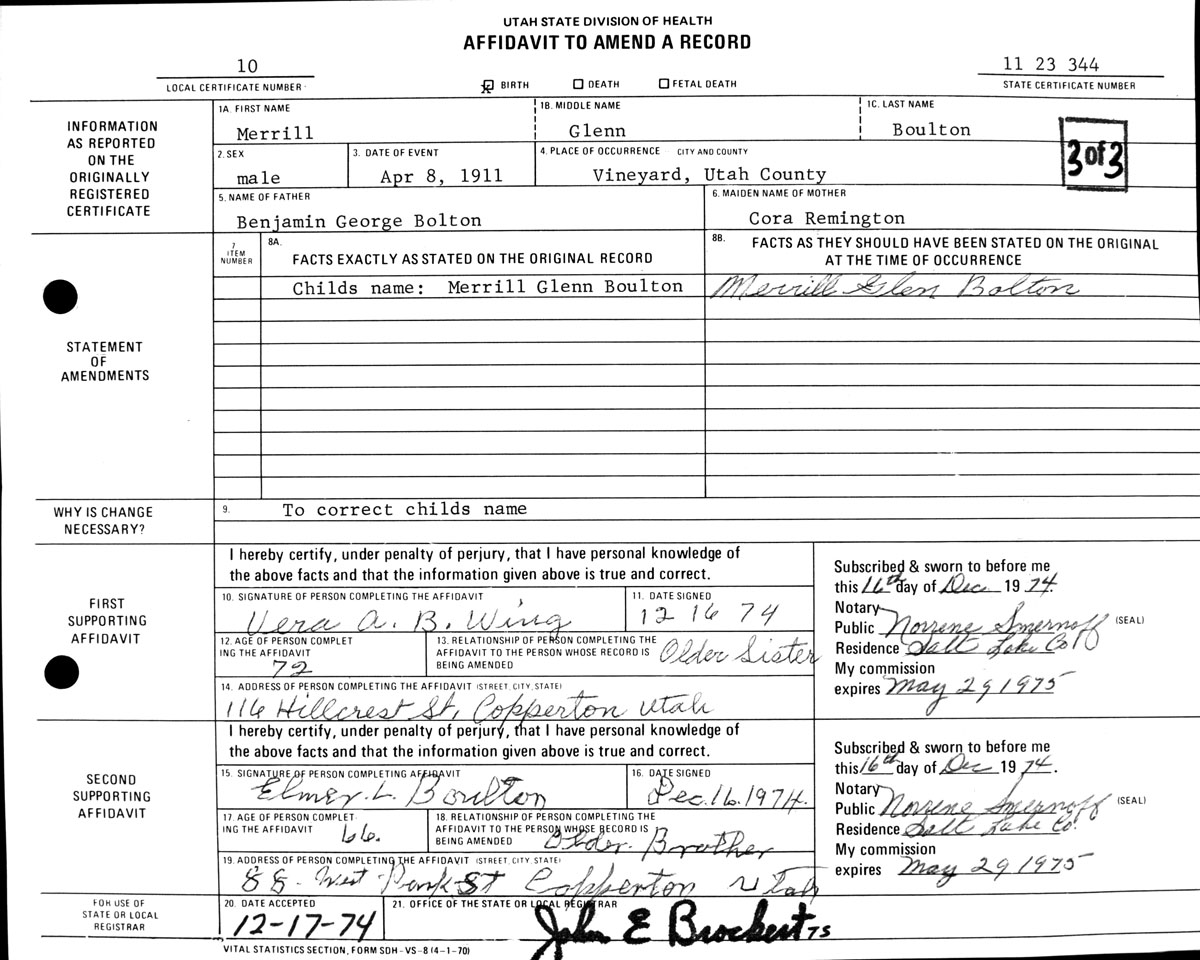 UTAH STATE DIVISION OF HEALTH
AFFIDAVIT TO AMEND A RECORD
10
LOCAL CERTIFICATE NUMBER
☒ BIRTH ☐ DEATH ☐ FETAL DEATH
11 23 344
STATE CERTIFICATE NUMBER
INFORMATION
AS REPORTED
ON THE
ORIGINALLY
REGISTERED
CERTIFICATE
1A. FIRST NAME
Merrill
1B. MIDDLE NAME
Glenn
1C. LAST NAME
Boulton
3 of 3
2. SEX
male
3. DATE OF EVENT
Apr 8, 1911
4. PLACE OF OCCURRENCE CITY AND COUNTY
Vineyard, Utah County
5. NAME OF FATHER
Benjamin George Bolton
6. MAIDEN NAME OF MOTHER
Cora Remington
STATEMENT
OF
AMENDMENTS
7
ITEM
NUMBER
8A.
FACTS EXACTLY AS STATED ON THE ORIGINAL RECORD
8B. FACTS AS THEY SHOULD HAVE BEEN STATED ON THE ORIGINAL
AT THE TIME OF OCCURRENCE
Childs name: Merrill Glenn Boulton
Merrill Glen Bolton
WHY IS CHANGE
NECESSARY?
9. To correct childs name
FIRST
SUPPORTING
AFFIDAVIT
I hereby certify, under penalty of perjury, that I have personal knowledge of
the above facts and that the information given above is true and correct.
10. SIGNATURE OF PERSON COMPLETING THE AFFIDAVIT
Vera A. B. Wing
11. DATE SIGNED
12 16 74
12. AGE OF PERSON COMPLET
ING THE AFFIDAVIT
72
13. RELATIONSHIP OF PERSON COMPLETING THE
AFFIDAVIT TO THE PERSON WHOSE RECORD IS
BEING AMENDED
Older Sister
14. ADDRESS OF PERSON COMPLETING THE AFFIDAVIT (STREET, CITY, STATE)
116 Hillcrest St, Copperton Utah
Subscribed & sworn to before me
this 16th day of Dec 19 74.
Notary
Public Norrene Smernoff (SEAL)
Residence Salt Lake Co
My commission
expires May 29 1975
SECOND
SUPPORTING
AFFIDAVIT
I hereby certify, under penalty of perjury, that I have personal knowledge of
the above facts and that the information given above is true and correct.
15. SIGNATURE OF PERSON COMPLETING AFFIDAVIT
Elmer L. Boulton
16. DATE SIGNED
Dec. 16. 1974.
17. AGE OF PERSON COMPLET
ING THE AFFIDAVIT
66.
18. RELATIONSHIP OF PERSON COMPLETING THE
AFFIDAVIT TO THE PERSON WHOSE RECORD IS
BEING AMENDED
Older. Brother
19. ADDRESS OF PERSON COMPLETING THE AFFIDAVIT (STREET, CITY, STATE)
88 West Park St Copperton Utah
Subscribed & sworn to before me
this 16th day of Dec 19 74.
Notary
Public Norrene Smernoff (SEAL)
Residence Salt Lake Co.
My commission
expires May 29 1975
FOR USE OF
STATE OR LOCAL
REGISTRAR
20. DATE ACCEPTED
12-17-74
21. OFFICE OF THE STATE OR LOCAL REGISTRAR
John E Brockert TS
VITAL STATISTICS SECTION, FORM SDH-VS-8 (4-1-70)